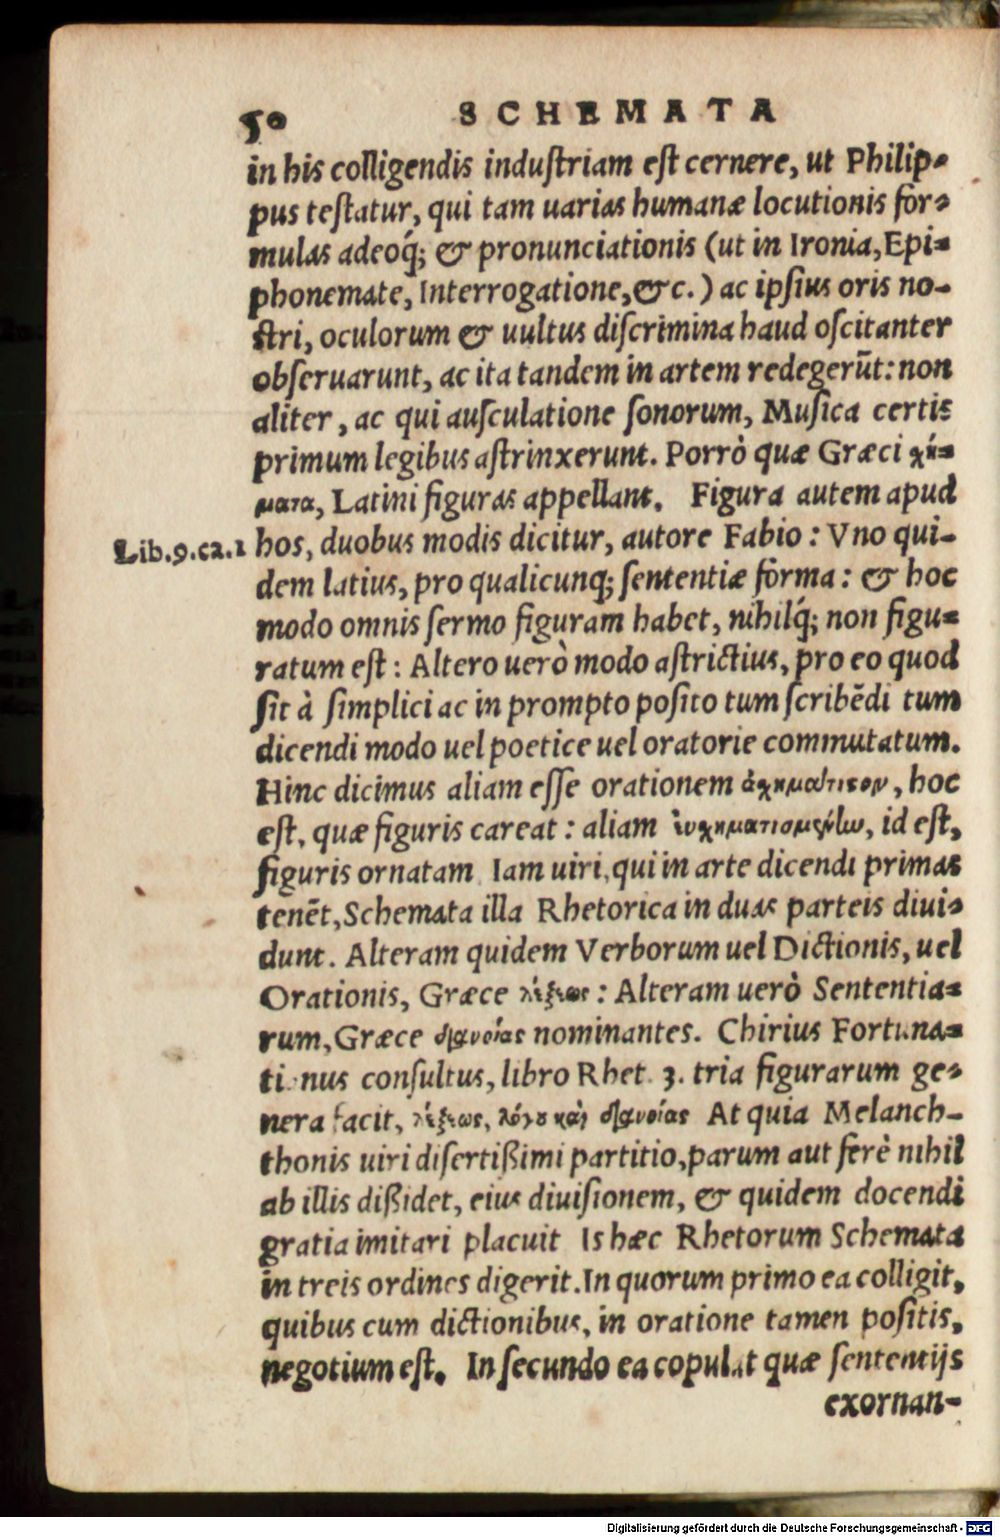 50 SCHEMATA
in his colligendis industriam est cernere, ut Philip-
pus testatur, qui tam uarias humanæ locutionis for-
mulas adeoq́; & pronunciationis (ut in Ironia, Epi-
phonemate, Interrogatione, &c.) ac ipsius oris no-
stri, oculorum & uultus discrimina haud oscitanter
obseruarunt, ac ita tandem in artem redegerūt: non
aliter, ac qui auscultatione sonorum, Musica certis
primum legibus astrinxerunt. Porrò quæ Græci χή-
ματα, Latini figuras appellant. Figura autem apud
Lib.9.ca.1 hos, duobus modis dicitur, autore Fabio: Vno qui-
dem latius, pro qualicunq; sententiæ forma: & hoc
modo omnis sermo figuram habet, nihilq́; non figu-
ratum est: Altero uerò modo astrictius, pro eo quod
sit à simplici ac in prompto posito tum scribēdi tum
dicendi modo uel poetice uel oratorie commutatum.
Hinc dicimus aliam esse orationem ἀχημάτισον, hoc
est, quæ figuris careat: aliam id est,
figuris ornatam Iam uiri, qui in arte dicendi primas
tenēt, Schemata illa Rhetorica in duas parteis diui-
dunt. Alteram quidem Verborum uel Dictionis, uel
Orationis, Græce λέξεως: Alteram uerò Sententia-
rum, Græce διανοίας nominantes. Chirius Fortuna-
tianus consultus, libro Rhet. 3. tria figurarum ge-
nera facit, λέξεως, λόγου καὶ διανοίας At quia Melanch-
thonis uiri disertißimi partitio, parum aut ferè nihil
ab illis dißidet, eius diuisionem, & quidem docendi
gratia imitari placuit Is hæc Rhetorum Schemata
in treis ordines digerit. In quorum primo ea colligit,
quibus cum dictionibus, in oratione tamen positis,
negotium est. In secundo ea copulat quæ sententijs
exornan-
Digitalisierung gefördert durch die Deutsche Forschungsgemeinschaft - DFG